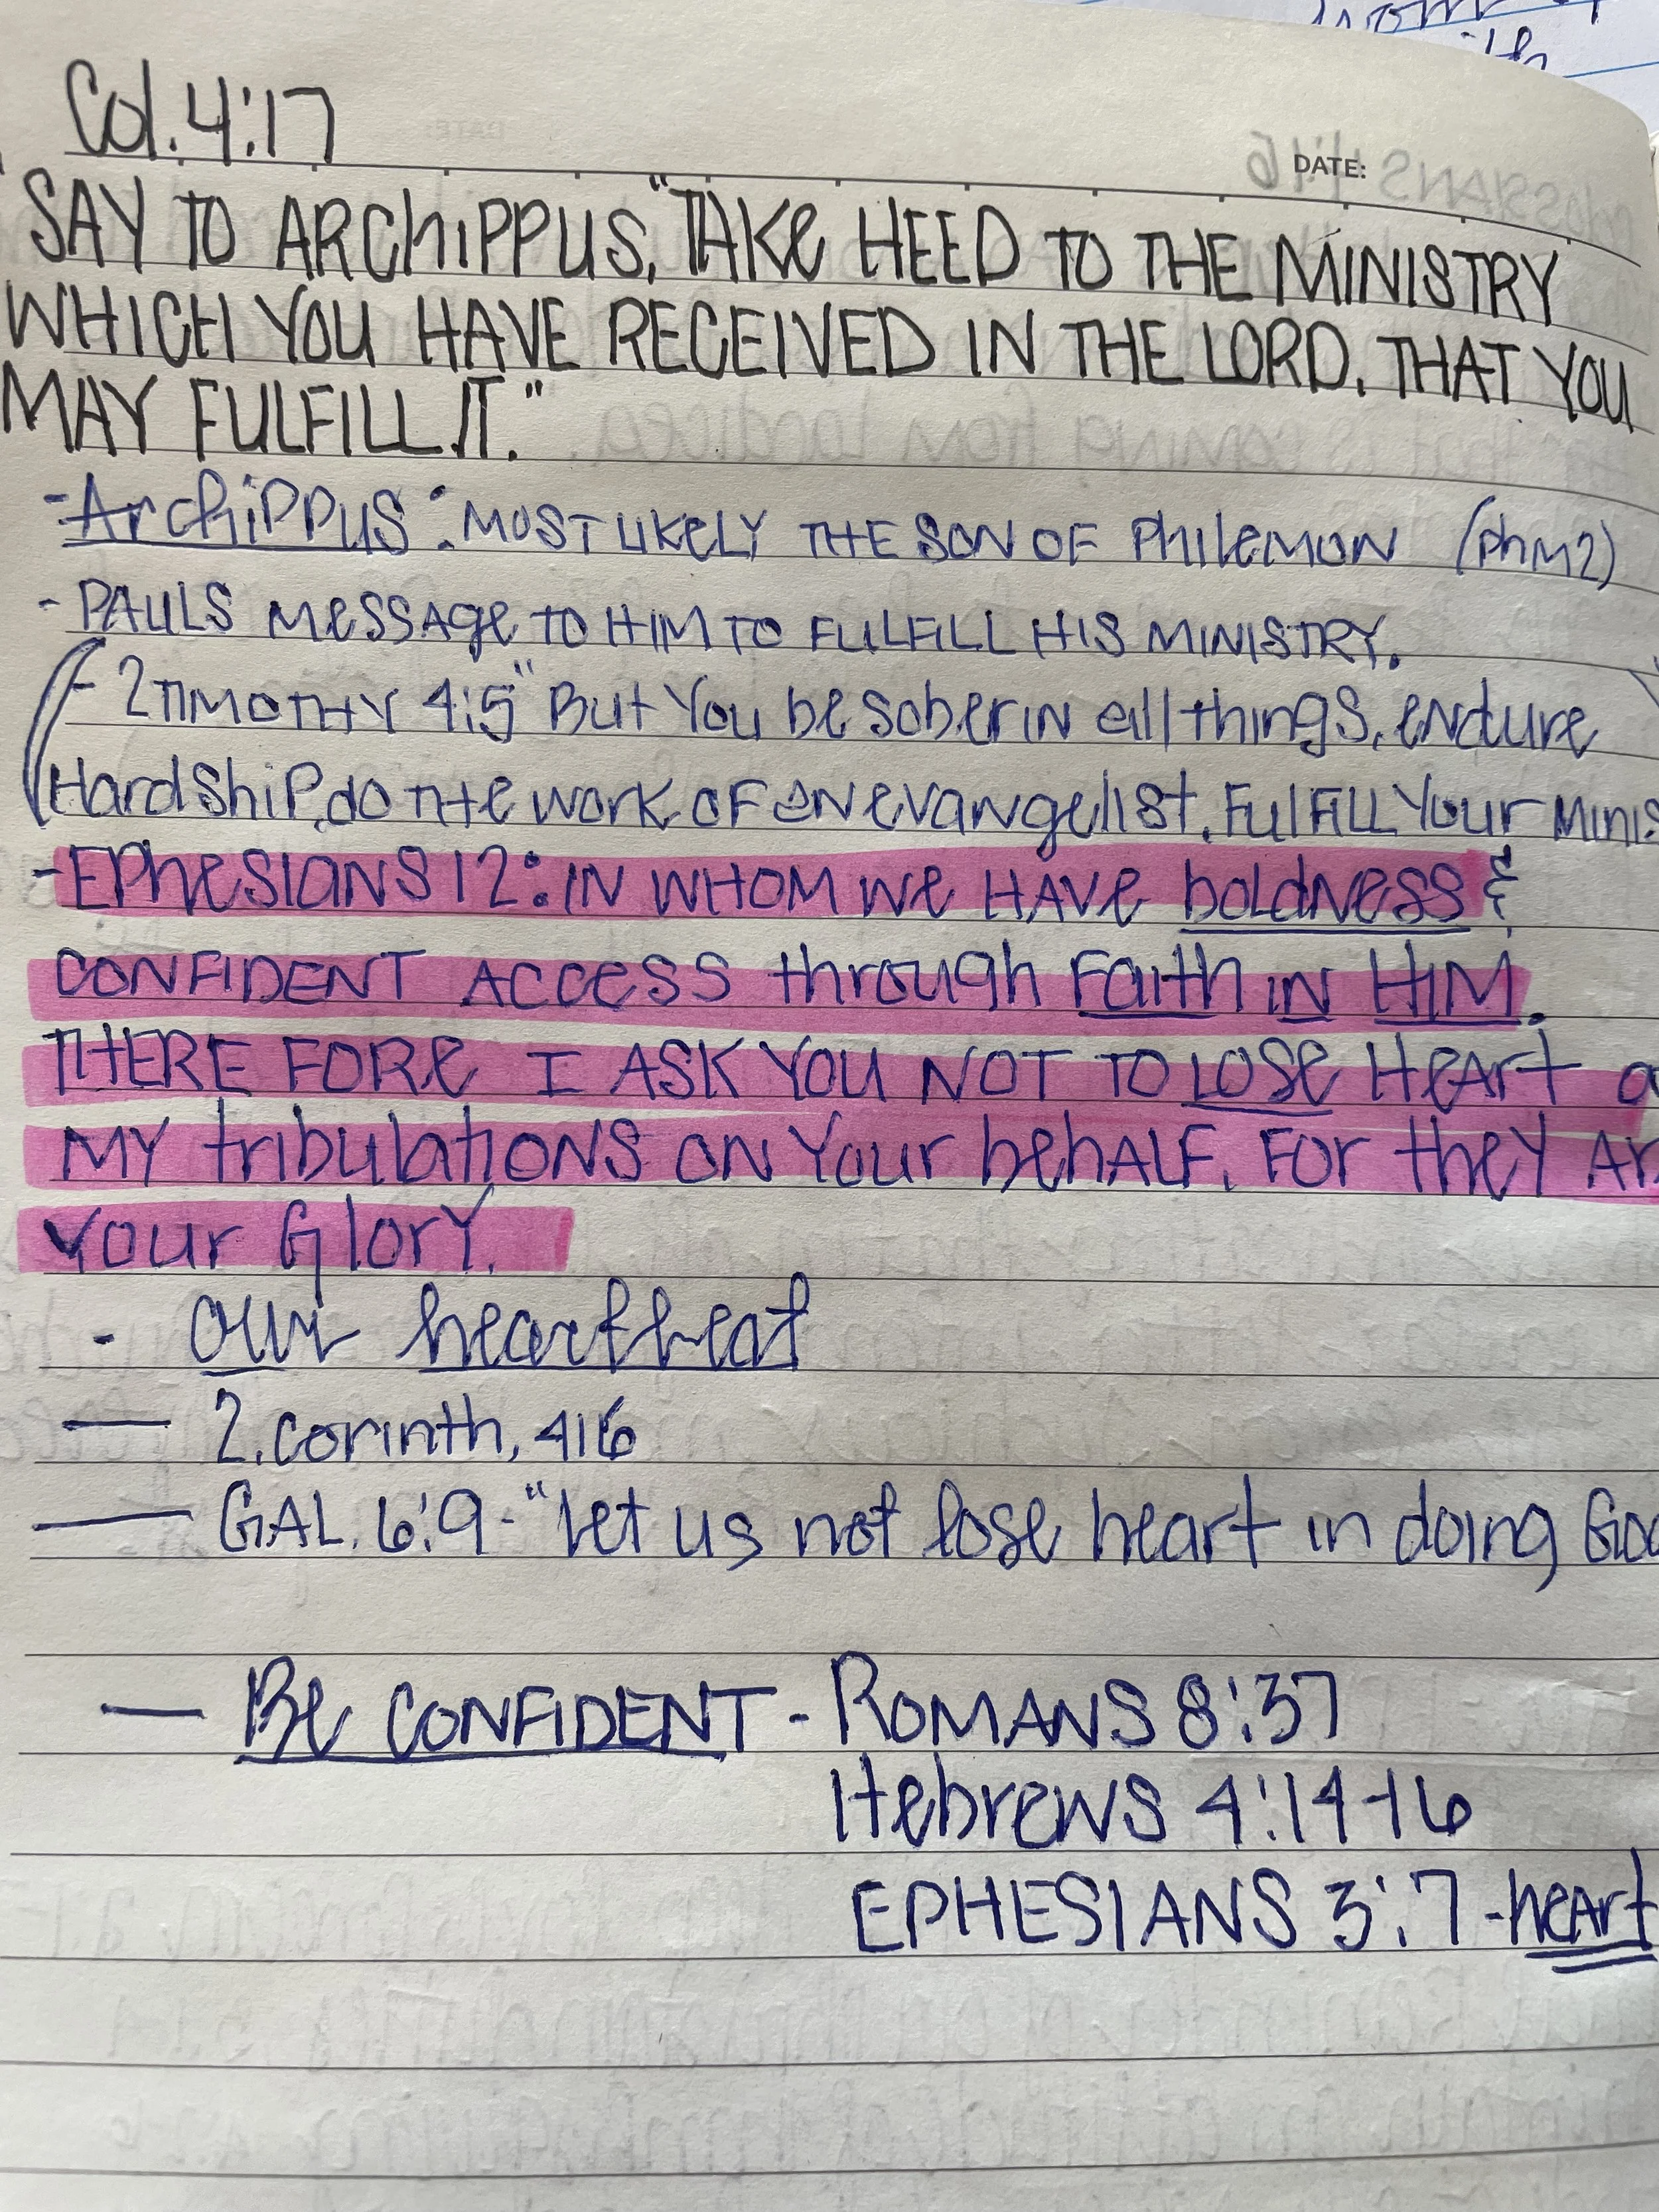 Col. 4:17
DATE:
"SAY TO ARCHIPPUS, "TAKE HEED TO THE MINISTRY
WHICH YOU HAVE RECEIVED IN THE LORD, THAT YOU
MAY FULFILL IT."
- Archippus: MOST LIKELY THE SON OF Philemon (Phm2)
- PAULS MESSAGE TO HIM TO FULFILL HIS MINISTRY.
- 2 TIMOTHY 4:5 "But You be sober in all things, endure
Hardship, do the work of an evangelist, Fulfill Your Minis
- EPHESIANS 12: IN WHOM WE HAVE boldness &
CONFIDENT ACCESS through Faith IN HIM.
THERE FORE I ASK YOU NOT TO LOSE HEART a
MY tribulations ON Your behalf, For they Ar
your Glory.
- our heartbeat
— 2. corinth, 416
— GAL. 6:9 - "let us not lose heart in doing Goo
— Be CONFIDENT - ROMANS 8:37
Hebrews 4:14-16
EPHESIANS 3:7 - heart